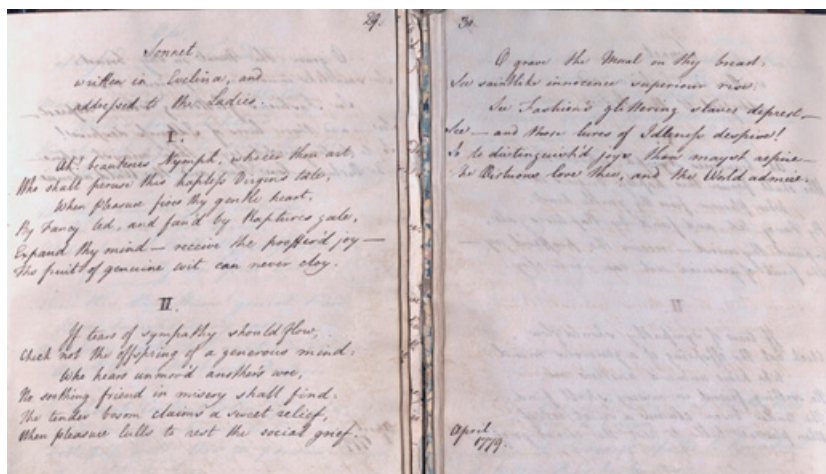 29.
Sonnet
written in Evelina, and
addressed to the Ladies.
I.
Ah! beauteous Nymph, whoe'er thou art,
Who shall peruse this hapless Virgin's tale,
When pleasure fires thy gentle heart,
By Fancy led, and fan'd by Raptures gale,
Expand thy mind — receive the proffer'd joy —
The fruit of genuine wit can never cloy.
II.
If tears of sympathy should flow,
Check not the offspring of a generous mind:
Who hears unmov'd another's woe,
No soothing friend in misery shall find.
The tender bosom claims a sweet relief,
When pleasure lulls to rest the social grief.
30
O grave the Moral on thy breast.
See saintlike innocence superiour rise:
See Fashion's glittering slaves deprest —
See — and those lures of Idleness despise!
So to distinguish'd joys thou mayst aspire —
The Virtuous love thee, and the World admire.
April
1779.